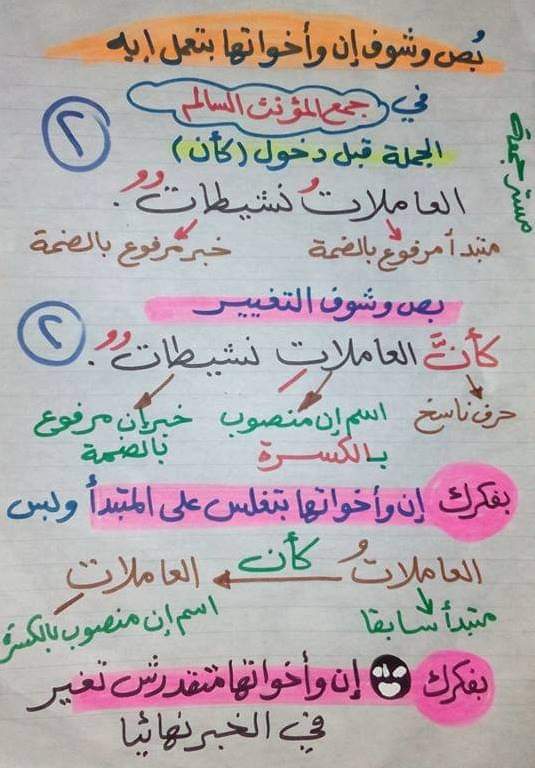 بُص وشوف إن وأخواتها بتعمل إيه
في جمع المؤنث السالم
٢
الجملة قبل دخول (كأن)
مستر جمعة
العاملاتُ نشيطاتٌ.
مبتدأ مرفوع بالضمة خبر مرفوع بالضمة
بص وشوف التغيير
٢
كأنَّ العاملاتِ نشيطاتٌ.
حرف ناسخ اسم إن منصوب خبر إن مرفوع
بالكسرة بالضمة
بفكرك إن وأخواتها بتغلس على المبتدأ وبس
العاملاتُ كأن العاملاتِ
مبتدأ سابقا اسم إن منصوب بالكسرة
بفكرك إن وأخواتها متقدرش تغير
في الخبر نهائيا